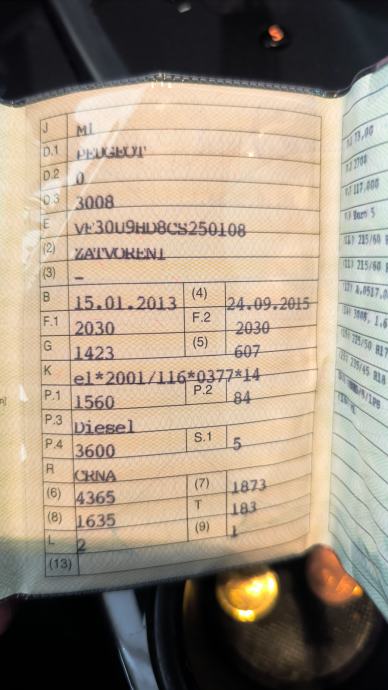 J M1
D.1 PEUGEOT
D.2 0
D.3 3008
E VF30U9HD8CS250108
(2) ZATVORENI
(3) –
B 15.01.2013 (4) 24.09.2015
F.1 2030 F.2 2030
G 1423 (5) 607
K e1*2001/116*0377*14
P.1 1560 P.2 84
P.3 Diesel
P.4 3600 S.1 5
R CRNA
(6) 4365 (7) 1873
(8) 1635 T 183
L 2 (9) 1
(13)
73,00
2700
117,000
Euro 5
215/60 R
215/60 R